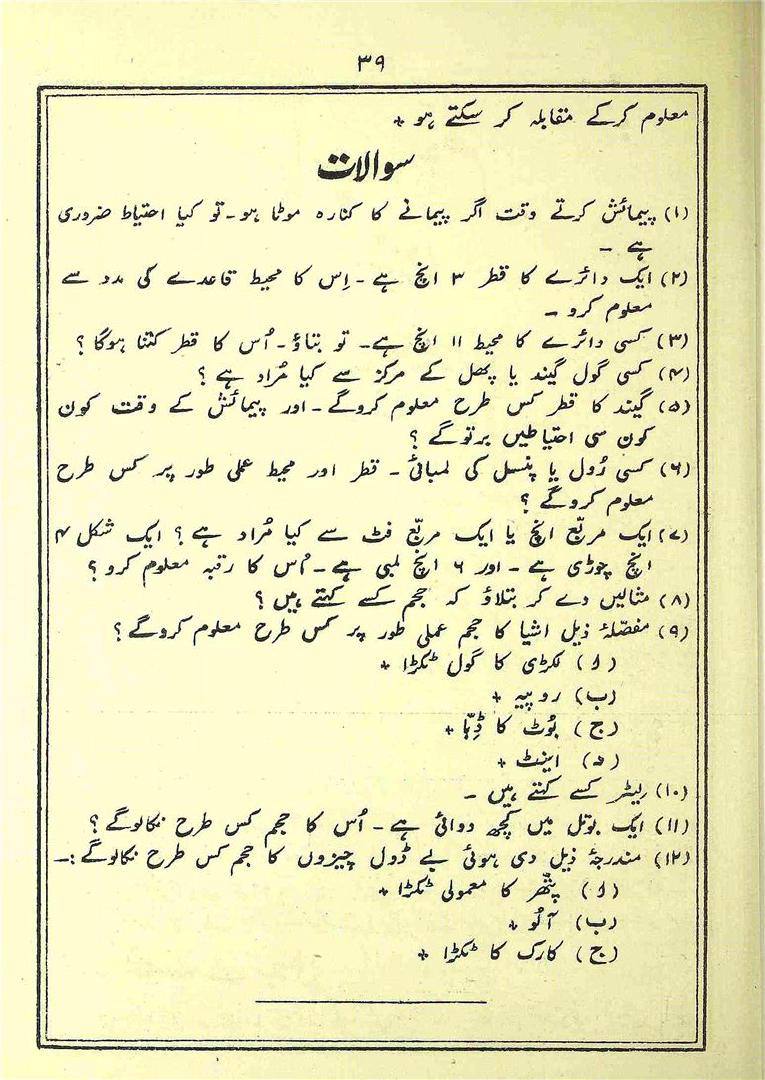 ۳۹
معلوم کرکے مقابلہ کر سکتے ہو +
سوالات
(۱) پیمائش کرتے وقت اگر پیمانے کا کنارہ موٹا ہو۔ تو کیا احتیاط ضروری
ہے ۔
(۲) ایک دائرے کا قطر ۳ انچ ہے۔ اِس کا محیط قاعدے کی مدد سے
معلوم کرو ۔
(۳) کسی دائرے کا محیط ۱۱ انچ ہے۔ تو بتاؤ۔ اُس کا قطر کتنا ہوگا ؟
(۴) کسی گول گیند یا پھل کے مرکز سے کیا مُراد ہے ؟
(۵) گیند کا قطر کس طرح معلوم کروگے ۔ اور پیمائش کے وقت کون
کون سی احتیاطیں برتوگے ؟
(۶) کسی رُول یا پنسل کی لمبائی ۔ قطر اور محیط عملی طور پر کس طرح
معلوم کروگے ؟
(۷) ایک مربّع انچ یا ایک مربّع فٹ سے کیا مُراد ہے ؟ ایک شکل ۴
انچ چوڑی ہے ۔ اور ۶ انچ لمبی ہے۔ اُس کا رقبہ معلوم کرو ؟
(۸) مثالیں دے کر بتلاؤ کہ حجم کسے کہتے ہیں ؟
(۹) مفصّلۂ ذیل اشیا کا حجم عملی طور پر کس طرح معلوم کروگے ؟
(ا) لکڑی کا گول ٹکڑا +
(ب) روپیہ +
(ج) بُوٹ کا ڈِبّا +
(د) اینٹ +
(۱۰) لِیٹر کسے کہتے ہیں ۔
(۱۱) ایک بوتل میں کچھ دوائی ہے ۔ اُس کا حجم کس طرح نکالوگے ؟
(۱۲) مندرجۂ ذیل دی ہوئی بے ڈول چیزوں کا حجم کس طرح نکالوگے :۔
(ا) پتّھر کا معمولی ٹکڑا +
(ب) آلُو +
(ج) کارک کا ٹکڑا +